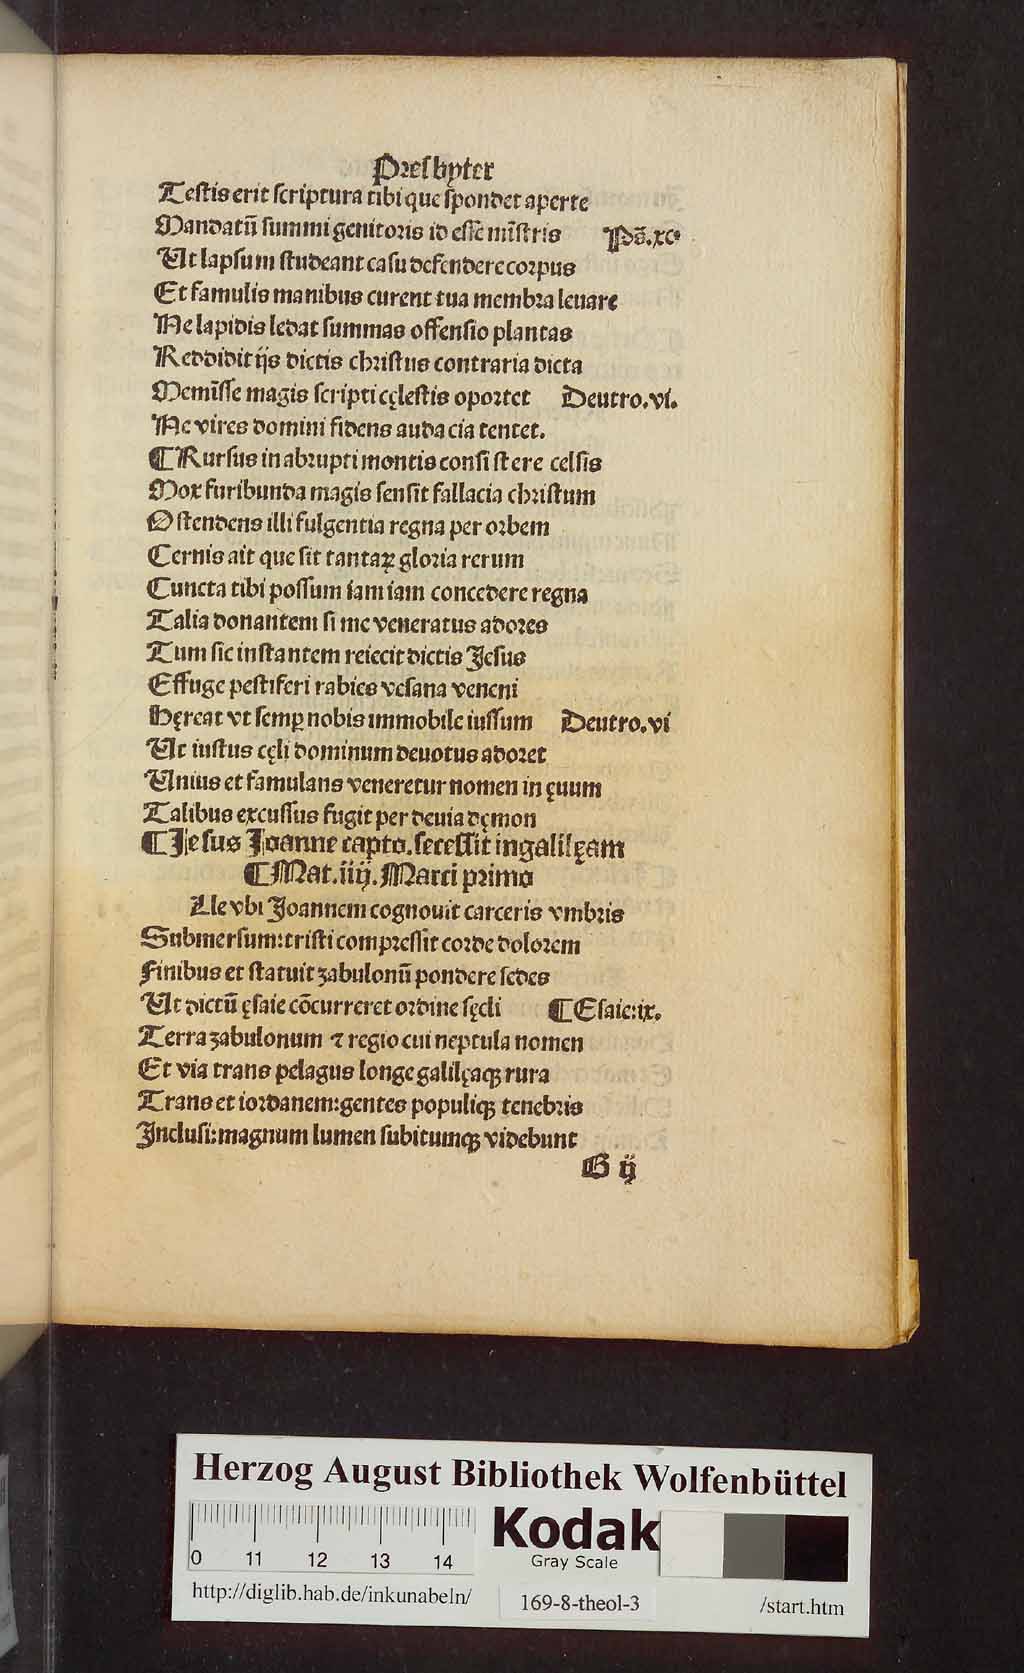 Presbyter
Testis erit scriptura tibi que spondet aperte
Mandatū summi genitoris id esse mīstris Ps̄.xc.
Ut lapsum studeant casu defendere corpus
Et famulis manibus curent tua membra leuare
Ne lapidis ledat summas offensio plantas
Reddidit ijs dictis christus contraria dicta
Memīsse magis scripti cęlestis oportet Deutro.vi.
Ne vires domini fidens audacia tentet.
¶ Rursus in abrupti montis consistere celsis
Mox furibunda magis sensit fallacia christum
Ostendens illi fulgentia regna per orbem
Cernis ait que sit tantaꝝ gloria rerum
Cuncta tibi possum iam iam concedere regna
Talia donantem si me veneratus adores
Tum sic instantem reiecit dictis Jesus
Effuge pestiferi rabies vesana veneni
Hęreat vt semꝑ nobis immobile iussum Deutro.vi
Ut iustus cęli dominum deuotus adoret
Unius et famulans veneretur nomen in ęuum
Talibus excussus fugit per deuia dęmon
¶ Jesus Joanne capto.secessit in galilęam
¶ Mat.iiij. Marci primo
Lle vbi Joannem cognouit carceris vmbris
Submersum:tristi compressit corde dolorem
Finibus et statuit zabulonū pondere sedes
Ut dictū ęsaie cōcurreret ordine sęcli ¶ Esaie:ix.
Terra zabulonum ⁊ regio cui neptula nomen
Et via trans pelagus longe galilęaqꝫ rura
Trans et iordanem:gentes populiqꝫ tenebris
Inclusi:magnum lumen subitumqꝫ videbunt
B ij
Herzog August Bibliothek Wolfenbüttel
0 11 12 13 14
Kodak
Gray Scale
http://diglib.hab.de/inkunabeln/ 169-8-theol-3 /start.htm